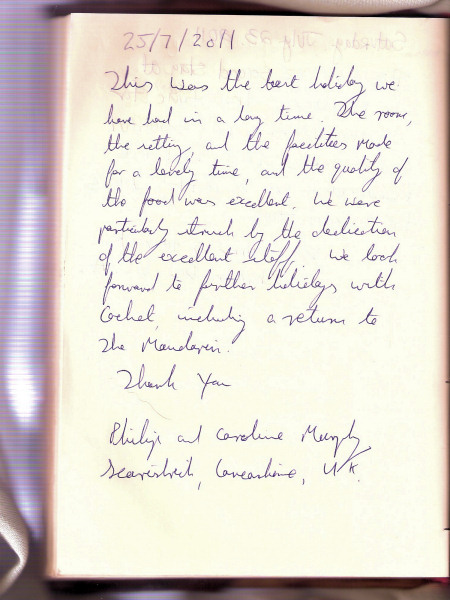 25/7/2011
This was the best holiday we
have had in a long time. The room,
the setting, and the facilities made
for a lovely time, and the quality of
the food was excellent. We were
particularly struck by the dedication
of the excellent staff. We look
forward to further holidays with
Cachet, including a return to
The Mandarin.
Thank You
Philip and Caroline Murphy
Scarisbrick, Lancashire, UK.